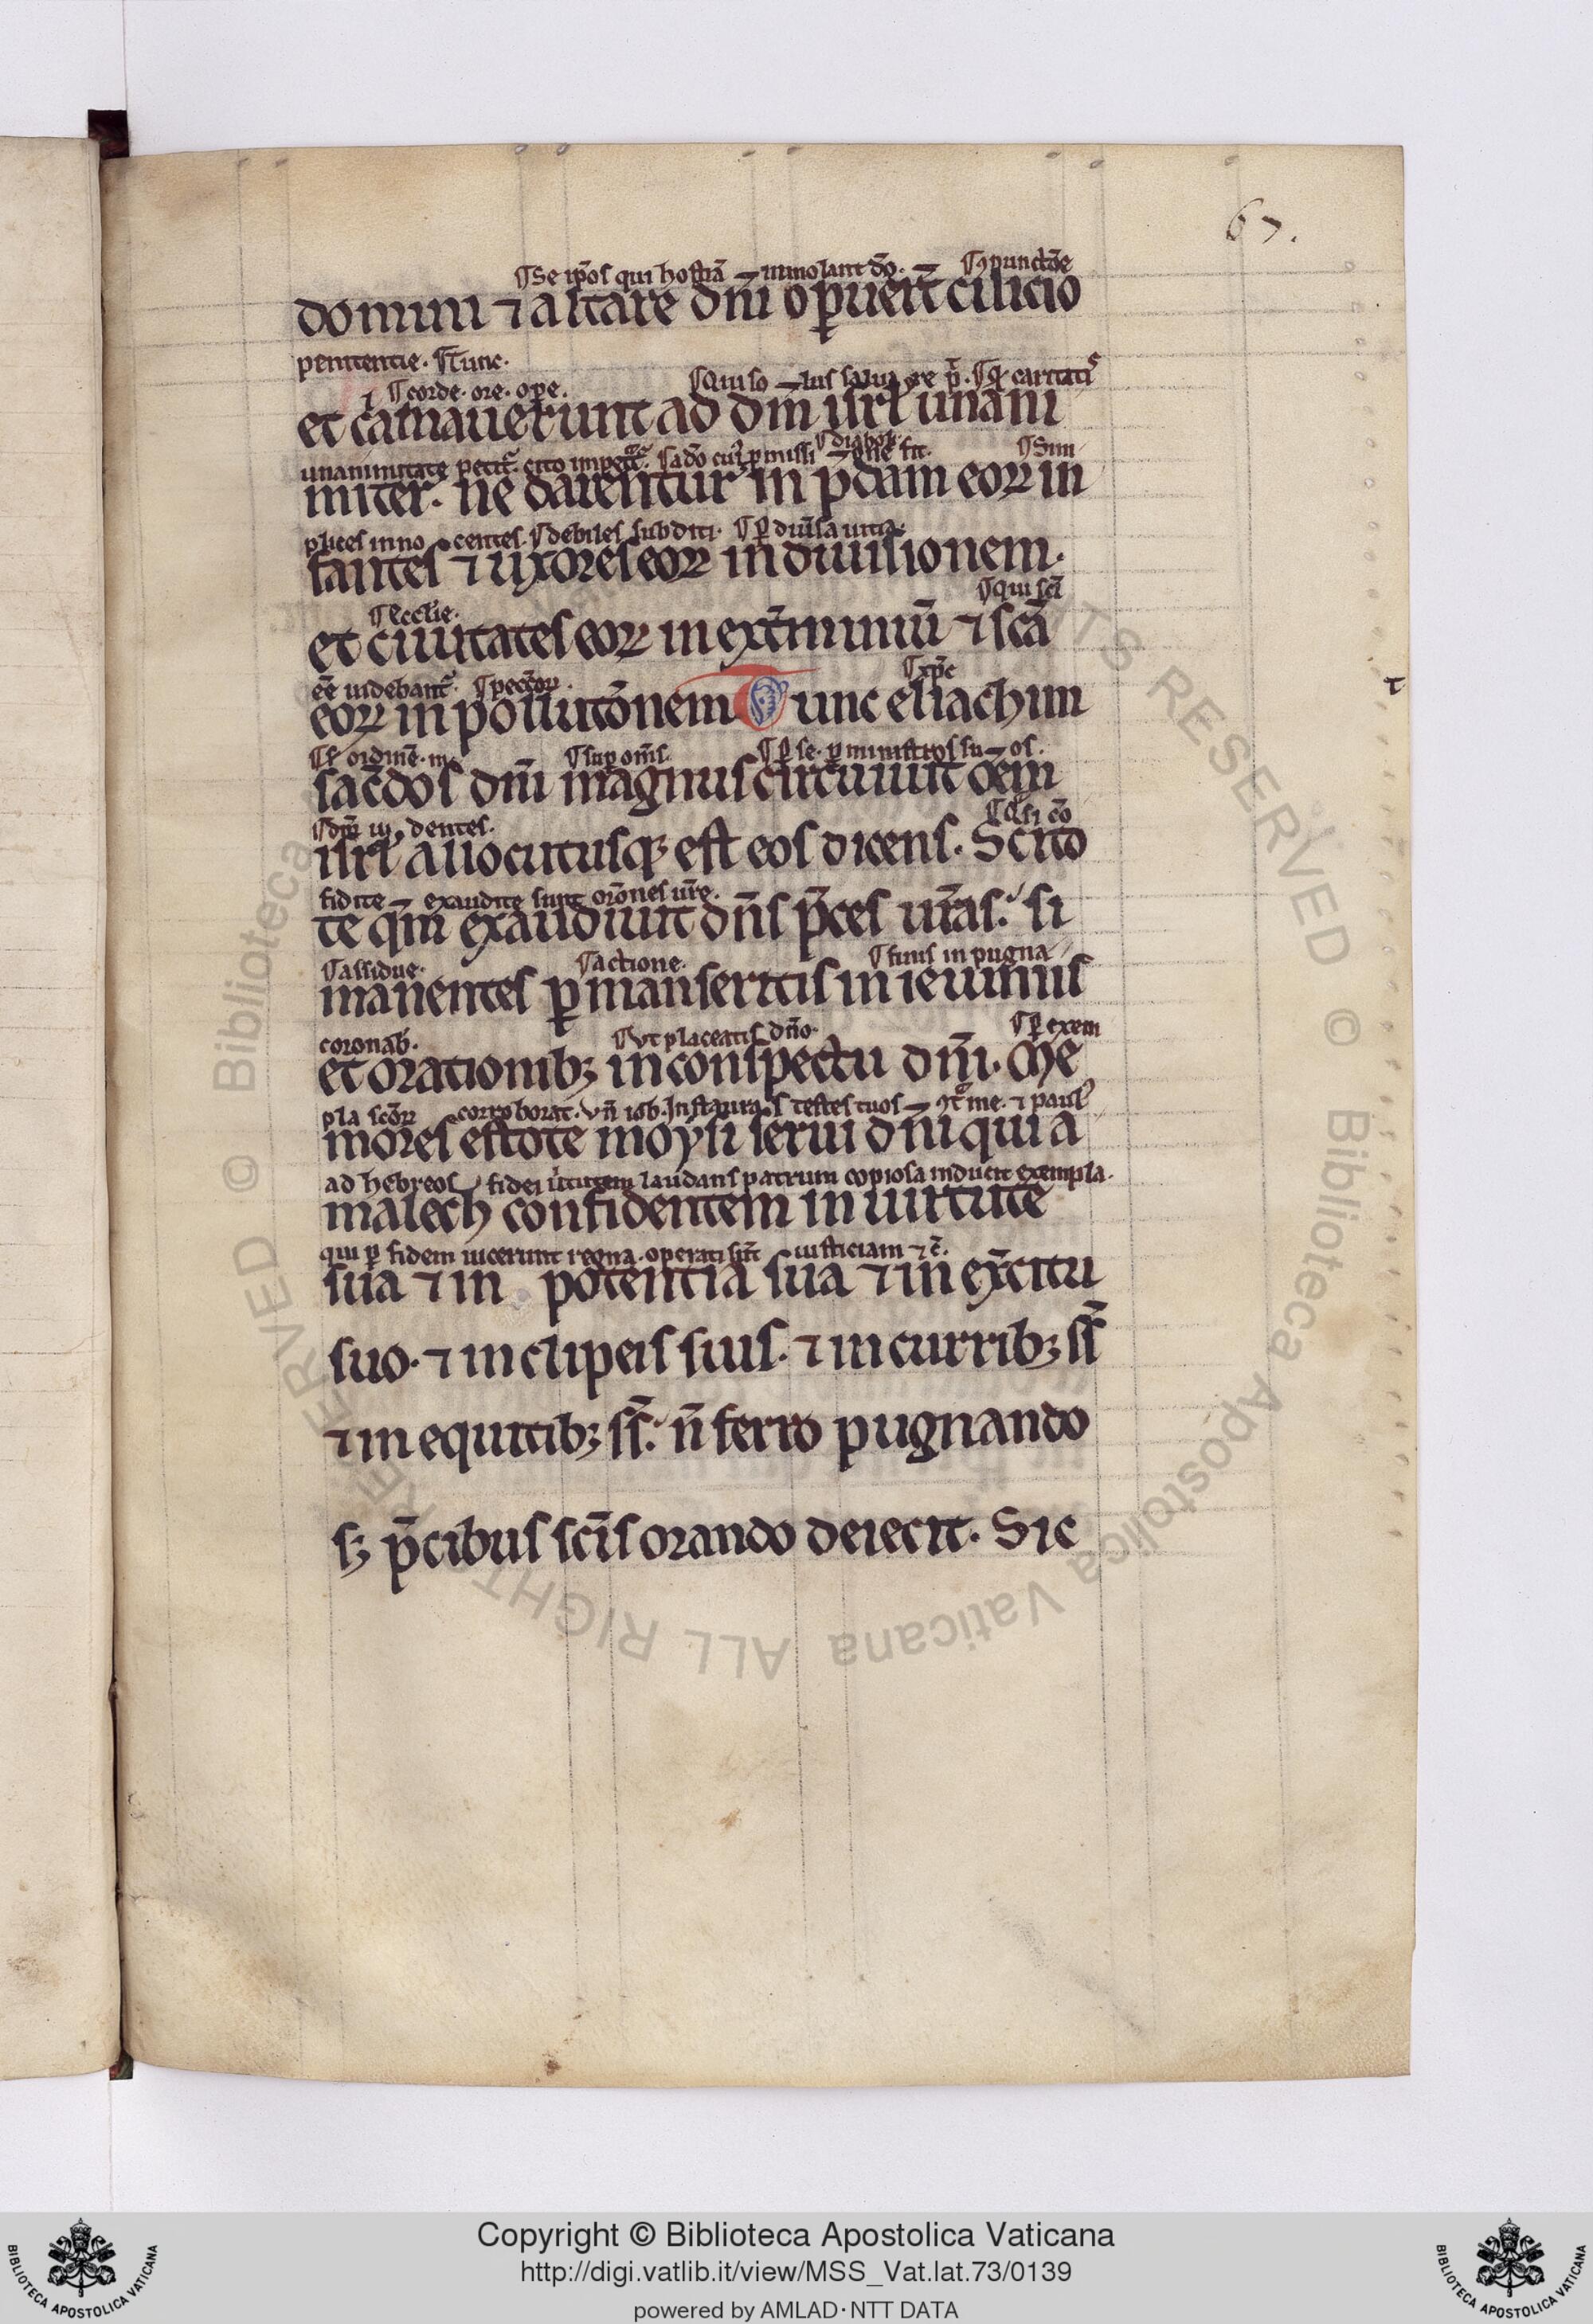 67.
¶Se ip̄os qui hostiā immolant dō. ¶ꝯpunctōe
domini ⁊ altare dn̄i oꝑuert̄ cilicio
penitentie. ¶Tunc.
¶corde. ore. oꝑe.
et clamauerunt ad dm̄ isrl̄ unani
unanimitate
miter. ne darentur in p̄dam eoꝝ in
plices innocentes. ¶debiles subditi. ¶ꝑ diūsa uitia.
fantes ⁊ uxores eoꝝ in diuisionem.
¶ecclie. ¶qui sc̄i
et ciuitates eoꝝ in ext̄miniū ⁊ sc̄a
ēe uidebant᷑. ¶peccatoꝝ. ¶xp̄c
eoꝝ in pollutōnem Tunc eliachim
¶sup om̄s. ¶ꝑ se. ꝑ ministros suos.
sac̄dos dn̄i magnus circuiuit oēm
isrl̄ allocutusqꝫ est eos dicens. Scito
fidite exaudite sunt orōnes ur̄e.
te qm̄ exaudiuit dn̄s p̄ces ur̄as. si
¶assidue. ¶actione. ¶finis in pugna
manentes ꝑmanseritis in ieiuniis
coronab. ¶Vt placeatis dn̄o. ¶ꝑ exem
et orationibꝫ in conspectu dn̄i. Me
pla sc̄oꝝ corroborat. Vn̄ iob. Instauras testes tuos ꝯt̄ me. ⁊ paul᷒
mores estote moysi serui dn̄i qui a
ad hebreos fidei ūtutem laudans patrum copiosa inducit exempla.
malech confidentem in uirtute
qui ꝑ fidem uicerunt regna. operati sūt iusticiam ⁊c̄.
sua ⁊ in potentia sua ⁊ in ex̄citu
suo. ⁊ in clipeis suis. ⁊ in curribꝫ ss̄
⁊ in equitibꝫ ss̄. n̄ ferro pugnando
sꝫ p̄cibus sc̄is orando deiecit. Sic
Copyright © Biblioteca Apostolica Vaticana
http://digi.vatlib.it/view/MSS_Vat.lat.73/0139
powered by AMLAD·NTT DATA
BIBLIOTECA APOSTOLICA VATICANA
BIBLIOTECA APOSTOLICA VATICANA
© Biblioteca Apostolica Vaticana ALL RIGHTS RESERVED